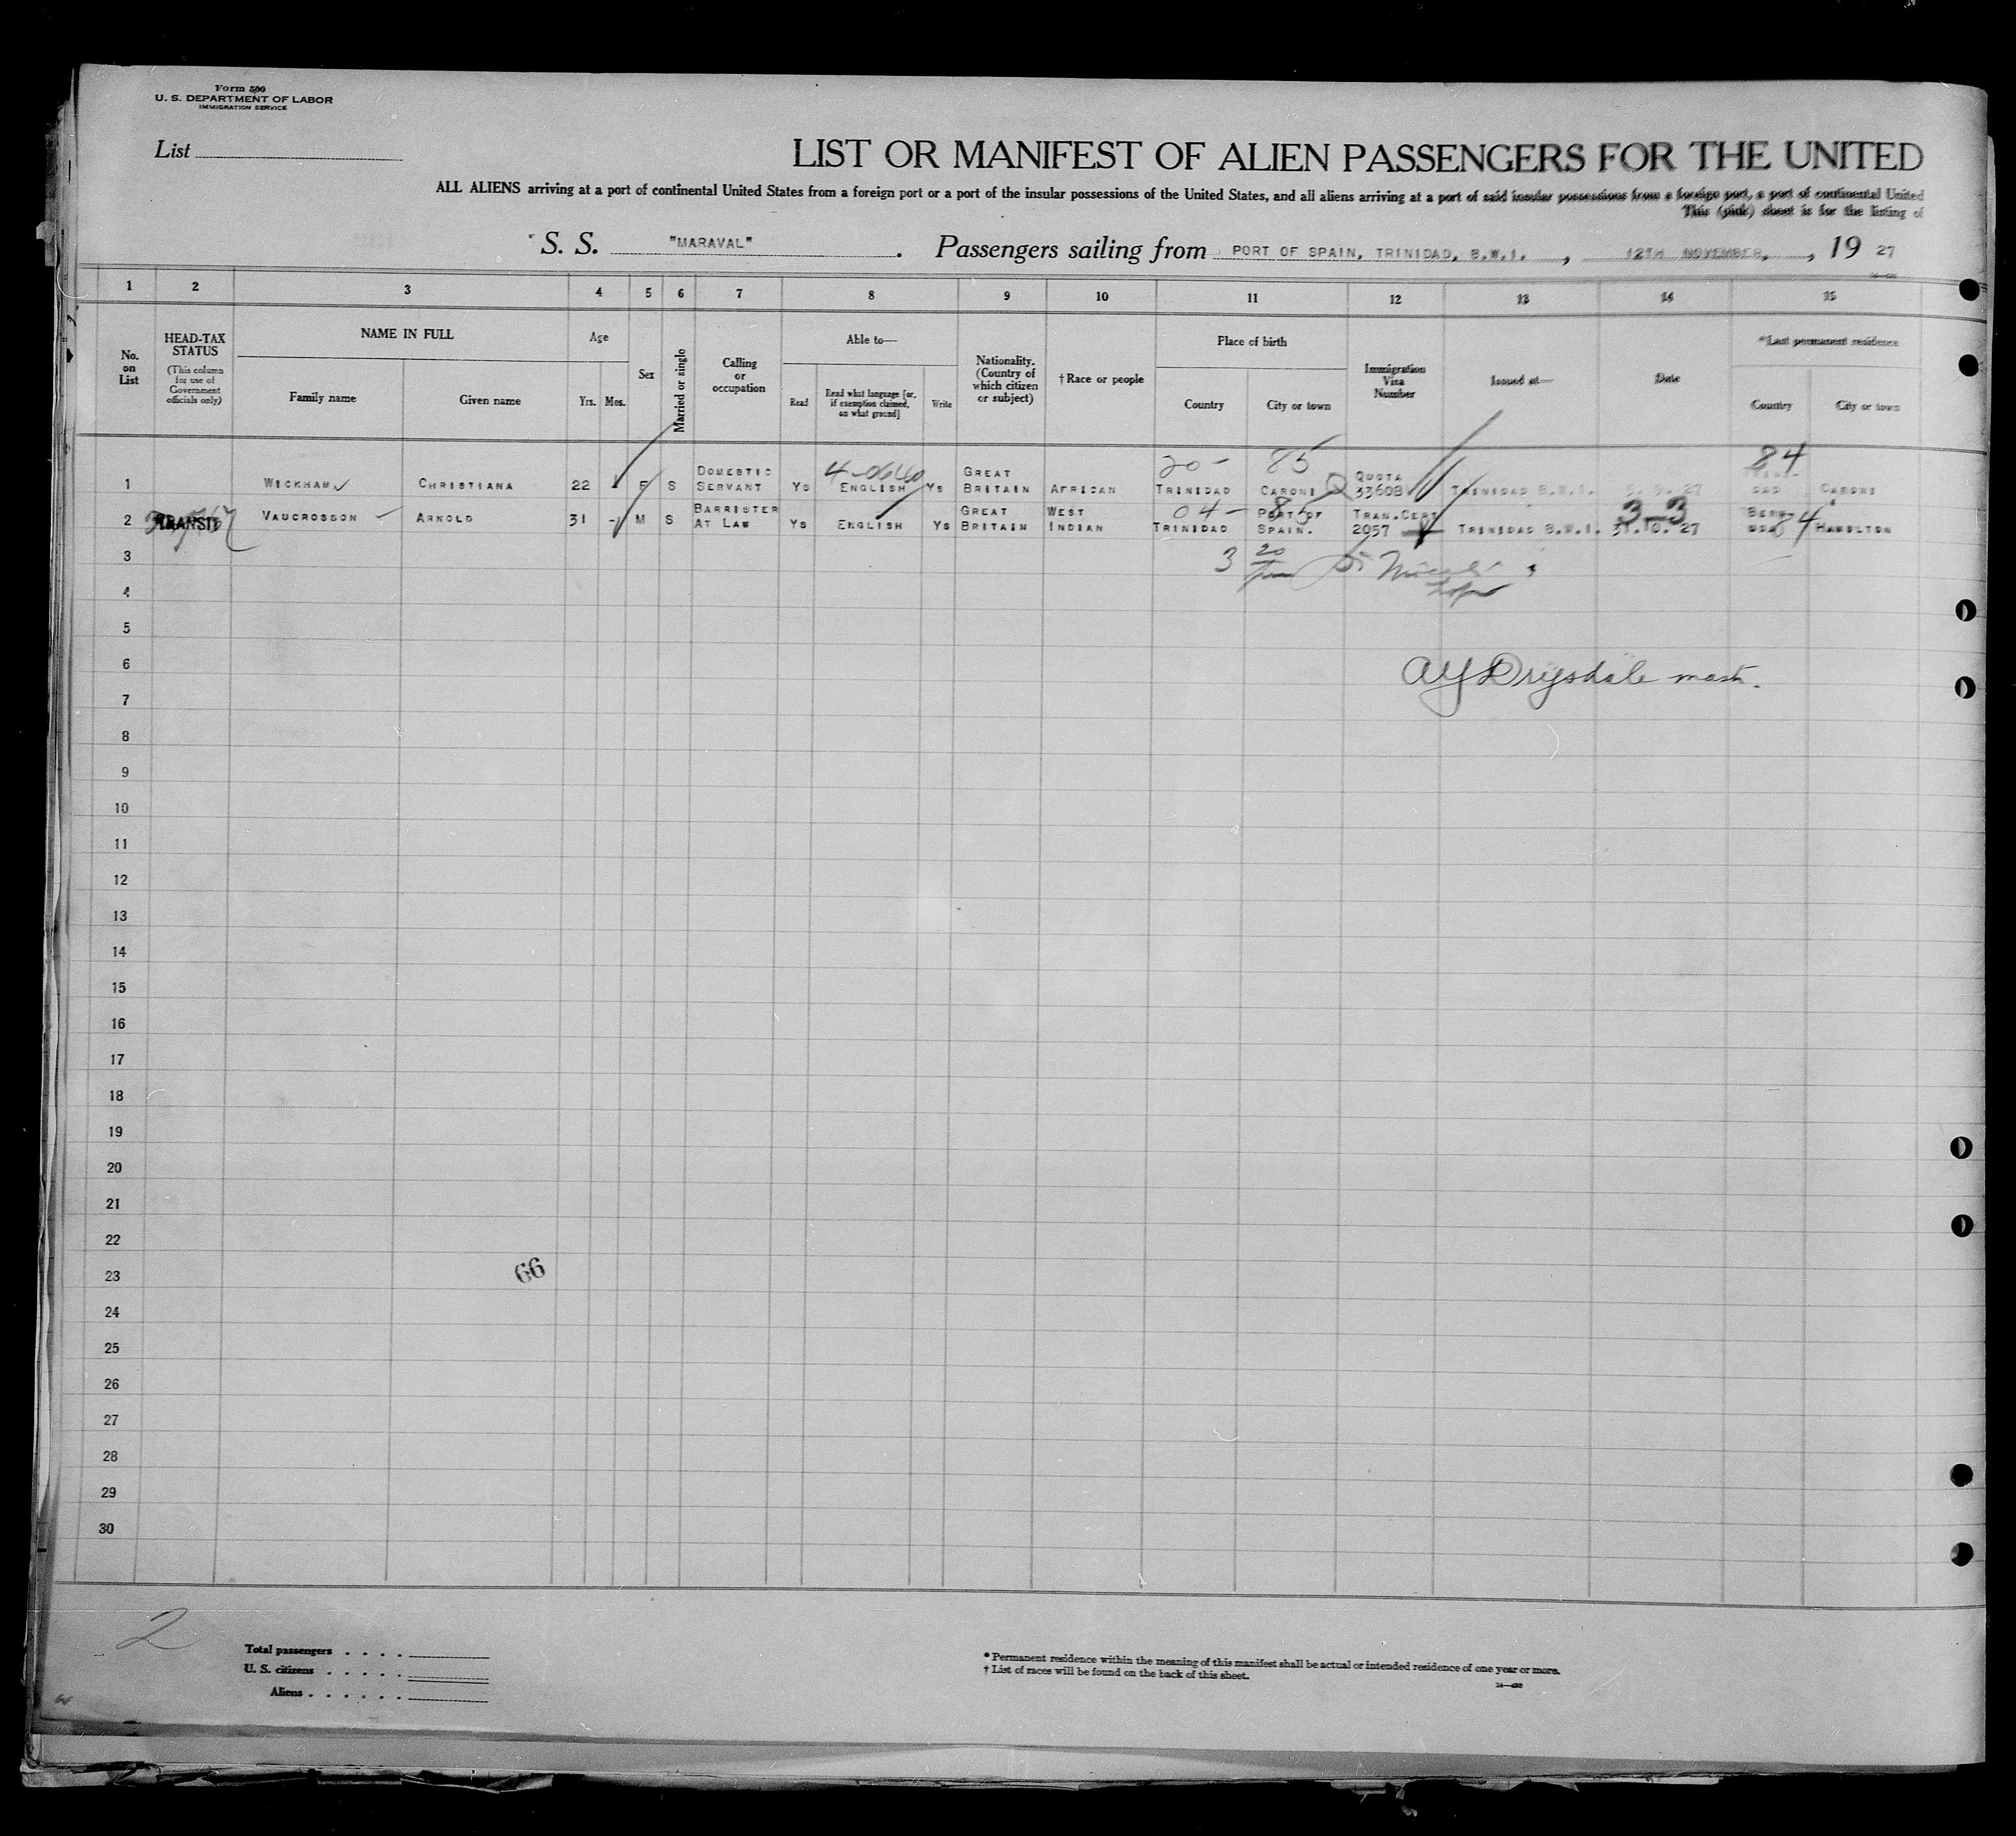 Form 500
U. S. DEPARTMENT OF LABOR
IMMIGRATION SERVICE
List
LIST OR MANIFEST OF ALIEN PASSENGERS FOR THE UNITED
ALL ALIENS arriving at a port of continental United States from a foreign port or a port of the insular possessions of the United States, and all aliens arriving at a port of said insular possessions from a foreign port, a port of continental United
This (pink) sheet is for the listing of
S. S. "MARAVAL". Passengers sailing from PORT OF SPAIN, TRINIDAD, B.W.I., 12TH NOVEMBER, 19 27
1 2 3 4 5 6 7 8 9 10 11 12 13 14 15
No. on List
HEAD-TAX STATUS
(This column for use of Government officials only)
NAME IN FULL
Family name Given name
Age
Yrs. Mos.
Sex
Married or single
Calling or occupation
Able to—
Read
Read what language [or, if exemption claimed, on what ground]
Write
Nationality. (Country of which citizen or subject)
†Race or people
Place of birth
Country City or town
Immigration Visa Number
Issued at—
Date
*Last permanent residence
Country City or town
20- 85 84
1 WICKHAM CHRISTIANA 22 F S DOMESTIC SERVANT YS ENGLISH YS GREAT BRITAIN AFRICAN TRINIDAD CARONI QUOTA 33608 TRINIDAD B.W.I. 27 CARONI
04- 85 3-3 84
2 TRANSIT VAUCROSSON ARNOLD 31 - M S BARRISTER AT LAW YS ENGLISH YS GREAT BRITAIN WEST INDIAN TRINIDAD PORT OF SPAIN. TRAN.CERT 2057 TRINIDAD B.W.I. 31.10.27 BERMUDA HAMILTON
3
3 20
4
5
6
AY Drysdale mast.
7
8
9
10
11
12
13
14
15
16
17
18
19
20
21
22
23
66
24
25
26
27
28
29
30
2
Total passengers
U. S. citizens
Aliens
* Permanent residence within the meaning of this manifest shall be actual or intended residence of one year or more.
† List of races will be found on the back of this sheet.